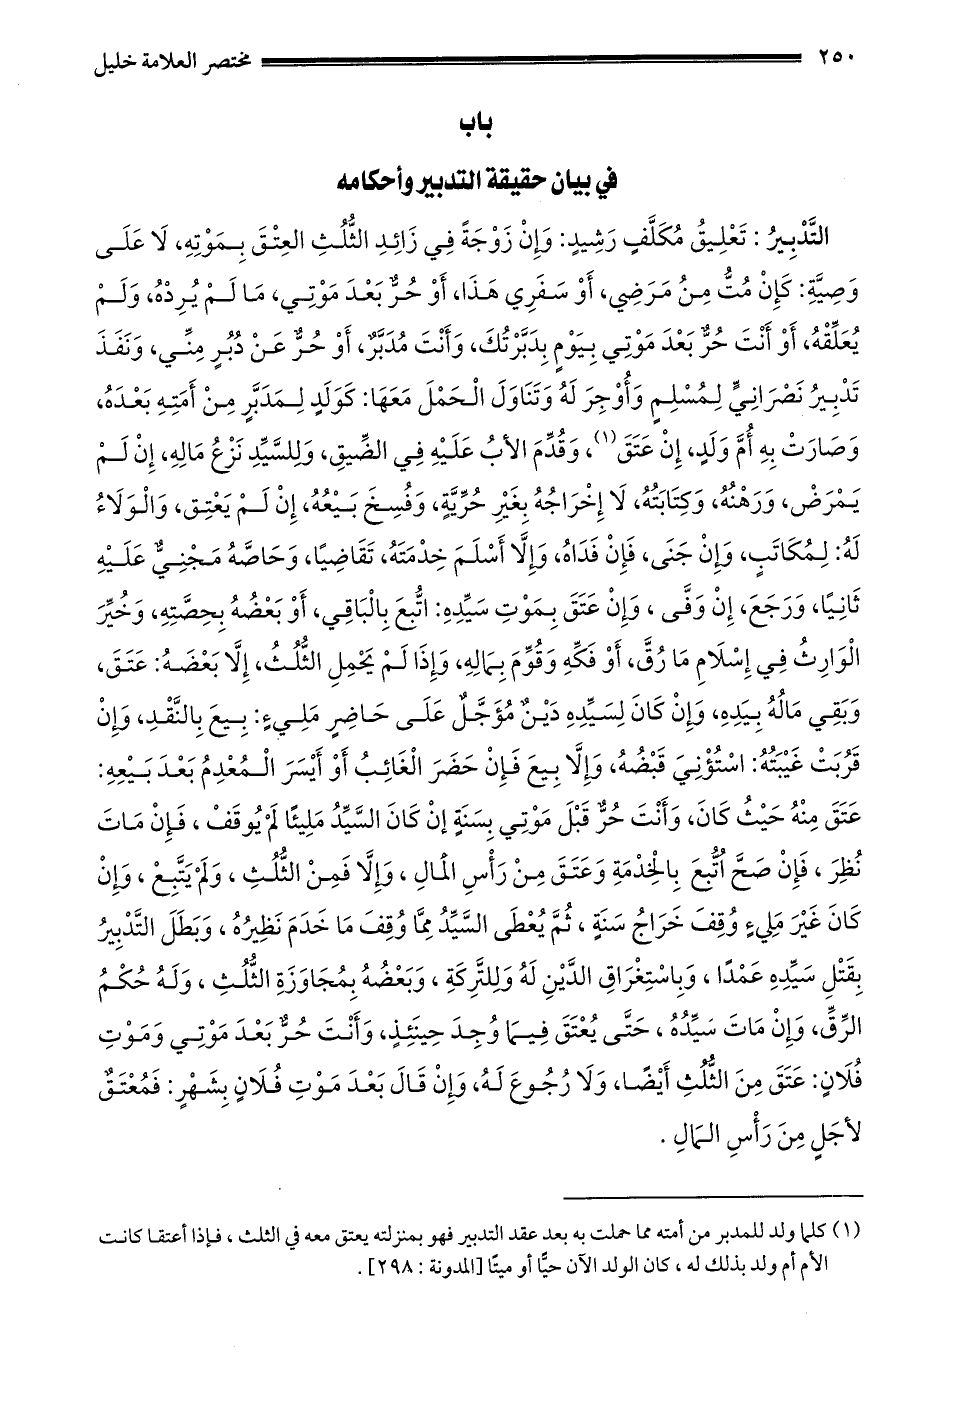 ٢٥٠ مختصر العلامة خليل
باب
في بيان حقيقة التدبير وأحكامه
التَّدْبِيرُ : تَعْلِيقُ مُكَلَّفٍ رَشِيدٍ: وَإِنْ زَوْجَةً فِي زَائِدِ الثُّلُثِ العِتْقَ بِمَوْتِهِ، لَا عَلَى
وَصِيَّةٍ: كَإِنْ مُتُّ مِنُ مَرَضِي، أَوْ سَفَرِي هَذَا، أَوْ حُرٌّ بَعْدَ مَوْتِي، مَا لَمْ يُرِدْهُ، وَلَمْ
يُعَلِّقْهُ، أَوْ أَنْتَ حُرٌّ بَعْدَ مَوْتِي بِيَوْمٍ بِدَبَّرْتُكَ، وَأَنْتَ مُدَبَّرٌ، أَوْ حُرٌّ عَنْ دُبُرٍ مِنِّي، وَنَفَذَ
تَدْبِيرُ نَصْرَانِيٍّ لِمُسْلِمٍ وَأُوْجِرَ لَهُ وَتَنَاوَلَ الْحَمْلَ مَعَهَا: كَوَلَدٍ لِمَدَبَّرٍ مِنْ أَمَتِهِ بَعْدَهُ،
وَصَارَتْ بِهِ أُمَّ وَلَدٍ، إِنْ عَتَقَ (١)، وَقُدِّمَ الأَبُ عَلَيْهِ فِي الضِّيقِ، وَلِلسَّيِّدِ نَزْعُ مَالِهِ، إِنْ لَمْ
يَمْرَضْ، وَرَهْنُهُ، وَكِتَابَتُهُ، لَا إِخْرَاجُهُ بِغَيْرِ حُرِّيَّةٍ، وَفُسِخَ بَيْعُهُ، إِنْ لَمْ يَعْتِق، وَالْوَلَاءُ
لَهُ: لِمُكَاتَبٍ، وَإِنْ جَنَى، فَإِنْ فَدَاهُ، وَإِلَّا أَسْلَمَ خِدْمَتَهُ، تَقَاضِيًا، وَحَاصَّهُ مَجْنِيٌّ عَلَيْهِ
ثَانِيًا، وَرَجَعَ، إِنْ وَفَّى ، وَإِنْ عَتَقَ بِمَوْتِ سَيِّدِهِ: اتُّبِعَ بِالْبَاقِي، أَوْ بَعْضُهُ بِحِصَّتِهِ، وَخُيِّرَ
الْوَارِثُ فِي إِسْلَامِ مَا رُقَّ، أَوْ فَكِّهِ وَقُوِّمَ بِمَالِهِ، وَإِذَا لَمْ يَحْمِلِ الثُّلُثُ، إِلَّا بَعْضَهُ: عَتَقَ،
وَبَقِي مَالُهُ بِيَدِهِ، وَإِنْ كَانَ لِسَيِّدِهِ دَيْنٌ مُؤَجَّلٌ عَلَى حَاضِرٍ مَلِيءٍ: بِيعَ بِالنَّقْدِ، وَإِنْ
قَرُبَتْ غَيْبَتُهُ: اسْتُؤْنِيَ قَبْضُهُ، وَإِلَّا بِيعَ فَإِنْ حَضَرَ الْغَائِبُ أَوْ أَيْسَرَ الْمُعْدِمُ بَعْدَ بَيْعِهِ:
عَتَقَ مِنْهُ حَيْثُ كَانَ، وَأَنْتَ حُرٌّ قَبْلَ مَوْتِي بِسَنَةٍ إِنْ كَانَ السَّيِّدُ مَلِيئًا لَمْ يُوقَفْ ، فَإِنْ مَاتَ
نُظِرَ ، فَإِنْ صَحَّ اتُّبِعَ بِالْخِدْمَةِ وَعَتَقَ مِنْ رَأْسِ الْمَالِ ، وَإِلَّا فَمِنْ الثُّلُثِ ، وَلَمْ يَتَّبِعْ ، وَإِنْ
كَانَ غَيْرَ مَلِيءٍ وُقِفَ خَرَاجُ سَنَةٍ ، ثُمَّ يُعْطَى السَّيِّدُ مِمَّا وُقِفَ مَا خَدَمَ نَظِيرُهُ ، وَبَطَلَ التَّدْبِيرُ
بِقَتْلِ سَيِّدِهِ عَمْدًا ، وَبِاسْتِغْرَاقِ الدَّيْنِ لَهُ وَلِلتَّرِكَةِ ، وَبَعْضُهُ بِمُجَاوَزَةِ الثُّلُثِ ، وَلَهُ حُكْمُ
الرِّقِّ، وَإِنْ مَاتَ سَيِّدُهُ ، حَتَّى يُعْتَقَ فِيمَا وُجِدَ حِينَئِذٍ، وَأَنْتَ حُرٌّ بَعْدَ مَوْتِي وَمَوْتِ
فُلَانٍ: عَتَقَ مِنَ الثُّلُثِ أَيْضًا، وَلَا رُجُوعَ لَهُ، وَإِنْ قَالَ بَعْدَ مَوْتِ فُلَانٍ بِشَهْرٍ: فَمُعْتَقٌ
لأَجَلٍ مِنَ رَأْسِ الـمَالِ .
(١) كلما ولد للمدبر من أمته مما حملت به بعد عقد التدبير فهو بمنزلته يعتق معه في الثلث ، فإذا أعتقا كانت
الأم أم ولد بذلك له ، كان الولد الآن حيًّا أو ميتًا [المدونة : ٢٩٨] .